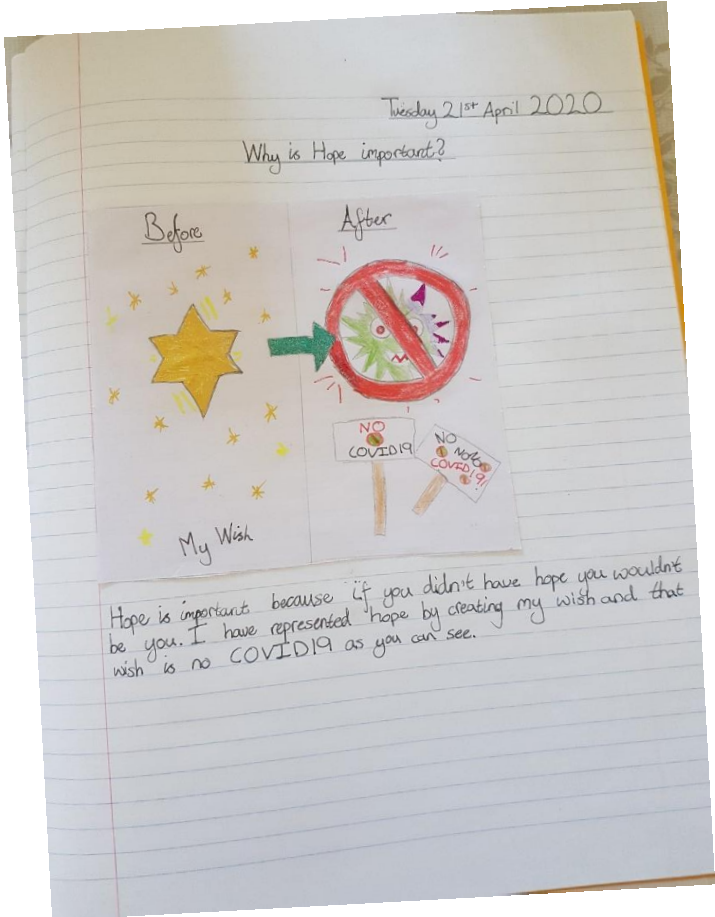 Tuesday 21st April 2020
Why is Hope important?
Before
After
NO
COVID19
NO
MORE
COVID19!
My Wish
Hope is important because if you didn't have hope you wouldn't
be you. I have represented hope by creating my wish and that
wish is no COVID19 as you can see.